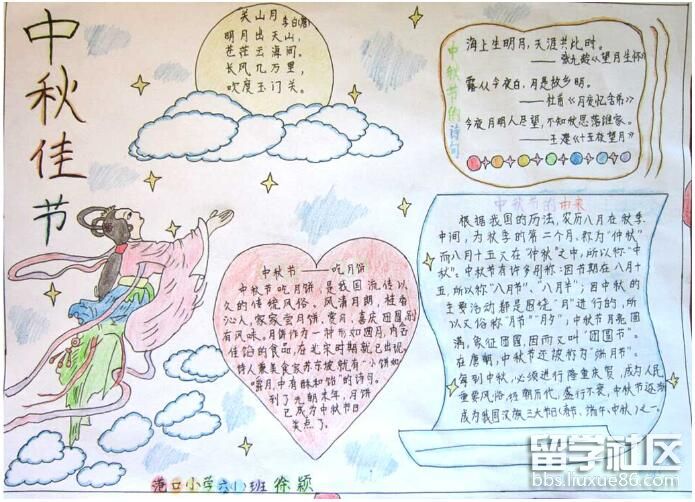 中秋佳节
关山月 李白(唐)
明月出天山,
苍茫云海间。
长风几万里,
吹度玉门关。
中秋节的诗句
海上生明月,天涯共此时。
——张九龄《望月生怀》
露从今夜白,月是故乡明。
——杜甫《月夜忆舍弟》
今夜月明人尽望,不知秋思落谁家。
——王建《十五夜望月》
中秋节——吃月饼
中秋节吃月饼,是我国流传已
久的传统风俗。风清月朗,桂香
沁人,家家尝月饼、赏月,喜庆团圆,别
有风味。月饼作为一种形如圆月,内含
佳馅的食品,在北宋时期就已出现
诗人兼美食家苏东坡就有"小饼如
嚼月,中有酥和饴"的诗句。
到了元朝末年,月饼
已成为中秋节日
美点了。
中秋节的由来
根据我国的历法,农历八月在秋季
中间,为秋季的第二个月,称为"仲秋"
而八月十五又在"仲秋"之中,所以称"中
秋"。中秋节有许多别称:因节期在八月十
五,所以称"八月节"、"八月半";因中秋的
主要活动都是围绕"月"进行的,所
以又俗称"月节""月夕";中秋节月亮圆
满,象征团圆,因而又叫"团圆节"。
在唐朝,中秋节还被称为"端月节"。
每到中秋,必须进行隆重庆贺,成为人民
重要风俗,经朝历代,盛行不衰,中秋节还
成为我国汉族三大节(春节,端午,中秋)之一。
港口小学六(1)班 徐颖
留学社区
bbs.liuxue86.com